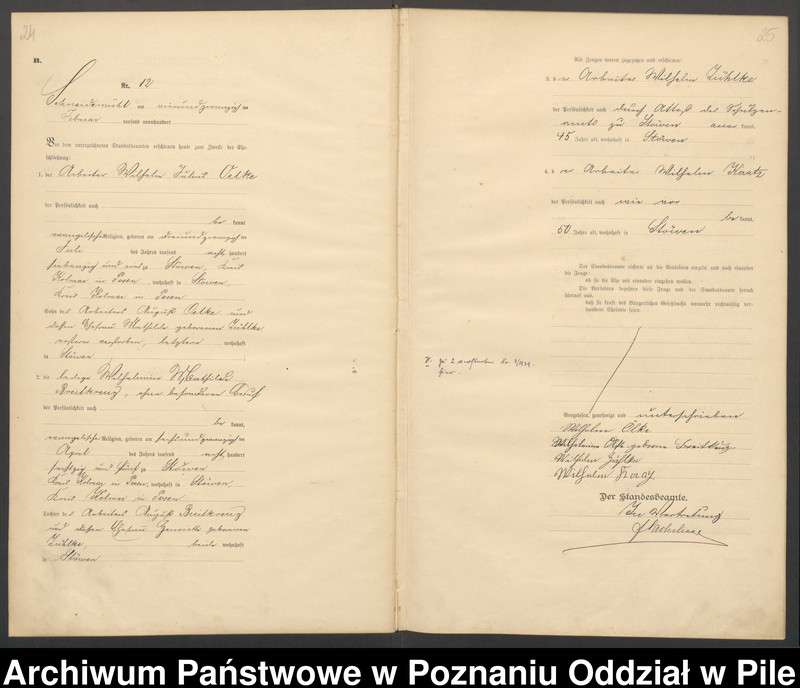 24
B.
Nr. 12
Schneidemühl am vierundzwanzigsten
Februar tausend neunhundert
Vor dem unterzeichneten Standesbeamten erschienen heute zum Zwecke der Ehe-
schließung:
1. der Arbeiter Wilhelm Julius Oelke
der Persönlichkeit nach
be kannt
evangelischer Religion, geboren am dreiundzwanzigsten
Juli des Jahres tausend acht hundert
siebenzig und zu Stöwen, Kreis
Kolmar in Posen, wohnhaft in Stöwen,
Kreis Kolmar in Posen
Sohn des Arbeiters August Oelke und
dessen Ehefrau Mathilde geborenen Zühlke
ersterer verstorben, letztere wohnhaft
in Stöwen
2. die ledige Wilhelmine Mathilde
Breitkreuz, ohne besonderen Beruf
der Persönlichkeit nach
be kannt
evangelischer Religion, geboren am sechsundzwanzigsten
April des Jahres tausend acht hundert
sechszig und fünf zu Stöwen
Kreis Kolmar in Posen, wohnhaft in Stöwen,
Kreis Kolmar in Posen
Tochter des Arbeiters August Breitkreuz
und dessen Ehefrau geborenen
Zühlke, beide wohnhaft
in Stöwen
25
Als Zeugen waren zugezogen und erschienen:
3. der Arbeiter Wilhelm Zühlke
der Persönlichkeit nach durch Attest des Schulzen-
amts zu Stöwen aner kannt,
45 Jahre alt, wohnhaft in Stöwen
4. der Arbeiter Wilhelm Kaatz
der Persönlichkeit nach wie vor
be kannt,
50 Jahre alt, wohnhaft in Stöwen
Der Standesbeamte richtete an die Verlobten einzeln und nach einander
die Frage:
ob sie die Ehe mit einander eingehen wollen.
Die Verlobten bejahten diese Frage und der Standesbeamte sprach
hierauf aus,
daß sie kraft des Bürgerlichen Gesetzbuchs nunmehr rechtmäßig ver-
bundene Eheleute seien.
zu 2 verstorben
hier.
Vorgelesen, genehmigt und unterschrieben
Wilhelm Ölke
Wilhelmine geborene Breitkreuz
Wilhelm Zühlke
Wilhelm Kaatz
Der Standesbeamte.
In Vertretung
Archiwum Państwowe w Poznaniu Oddział w Pile